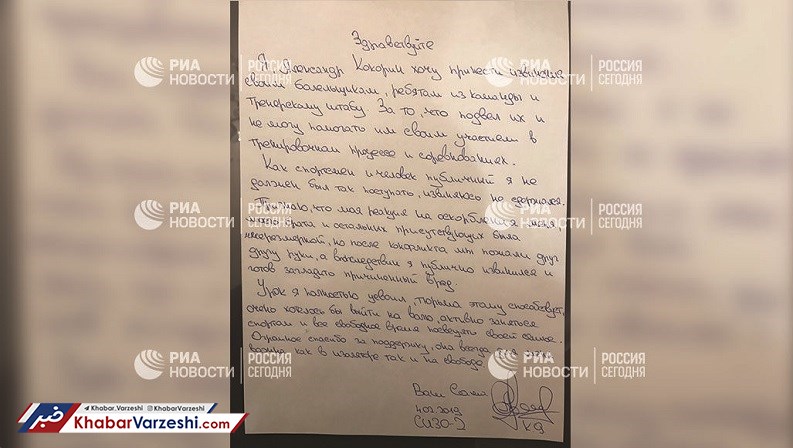 Здравствуйте
Я Александр Кокорин хочу принести извинения
своим болельщикам, ребятам из команды и
тренерскому штабу. За то, что подвел их и
не могу помогать им своим участием в
тренировочном процессе и соревнованиях.
Как спортсмен и человек публичный я не
должен был так поступать, извиняюсь не сдержался.
Признаю, что моя реакция на оскорбления меня,
моего брата и остальных присутствующих была
несоразмерной, но после конфликта мы пожали друг
другу руки, а впоследствии я публично извинился и
готов загладить причиненный вред.
Урок я полностью усвоил, тюрьма этому способствует,
очень хотелось бы выйти на волю, активно заняться
спортом и все свободное время посвещать своей семье.
Огромное спасибо за поддержку, она всегда
важна как в изоляторе так и на свободе
Ваш Саша
4.02.2019
СИЗО-2
К9
РИА НОВОСТИ
РОССИЯ СЕГОДНЯ
РИА НОВОСТИ
РОССИЯ СЕГОДНЯ
РИА НОВОСТИ
РОССИЯ СЕГОДНЯ
РИА НОВОСТИ
РОССИЯ СЕГОДНЯ
РИА НОВОСТИ
РОССИЯ СЕГОДНЯ
РИА НОВОСТИ
РОССИЯ СЕГОДНЯ
خبر
Khabar.Varzeshi KhabarVarzeshi
KhabarVarzeshi.com